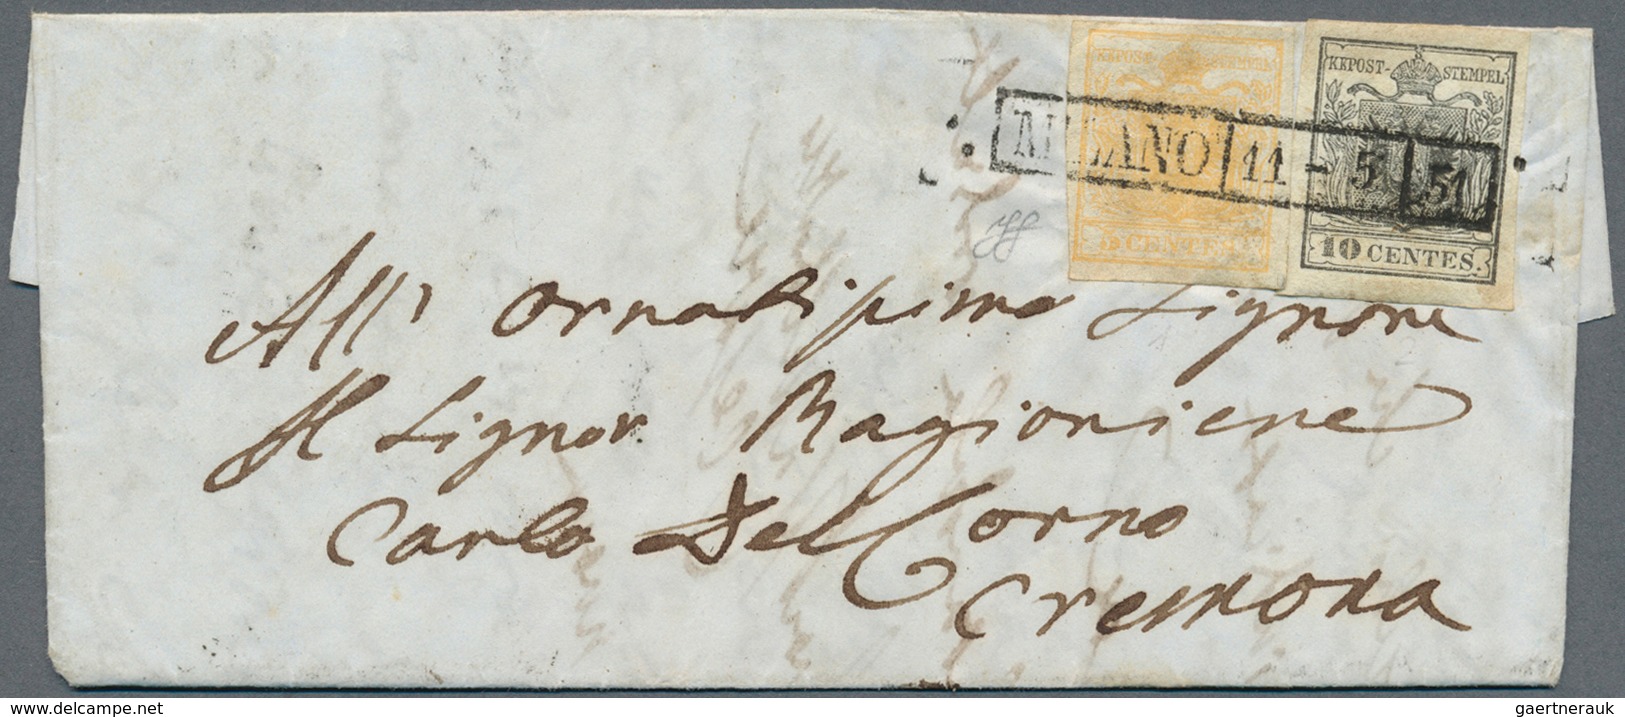 KKPOST-STEMPEL
5 CENTES.
KKPOST-STEMPEL
10 CENTES.
MILANO 11 - 5 51
All' Ornatissimo Signore
Il Signor Ragioniere
Carlo Del Corno
Cremona
www.delcampe.net
gaertnerauk